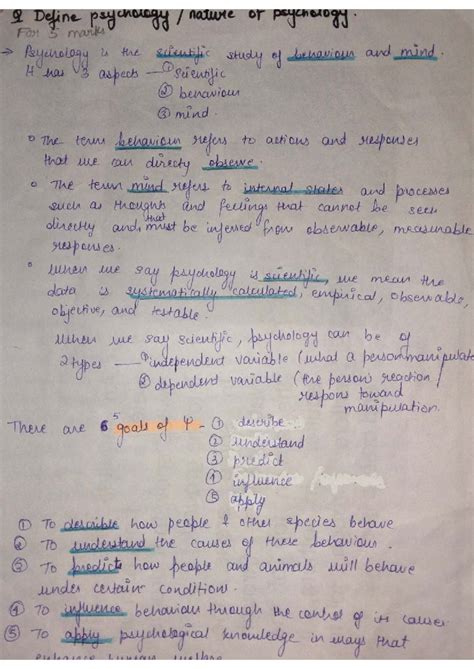 Q Define psychology / nature of psychology.
For 5 marks
→ Psychology is the scientific study of behaviour and mind.
It has 3 aspects — ① scientific
② behaviour
③ mind.
o The term behaviour refers to actions and responses
that we can directly observe.
o The term mind refers to internal states and processes
such as thoughts and feelings that cannot be seen
directly and that must be infered from observable, measurable
responses.
o When we say psychology is scientific, we mean the
data is systematically calculated, empirical, observable,
objective, and testable.
When we say scientific, psychology can be of
2 types — ① independent variable (what a person manipulate
② dependent variable (the person reaction /
respons toward
manipulation.
There are 6 5 goals of Ψ - ① describe
② understand
③ predict
④ influence
⑤ apply
① To describe how people & other species behave
② To understand the causes of these behaviour.
③ To predict how people and animals will behave
under certain condition.
④ To influence behaviour through the control of its causes
⑤ To apply psychological knowledge in ways that
enhance human welfare